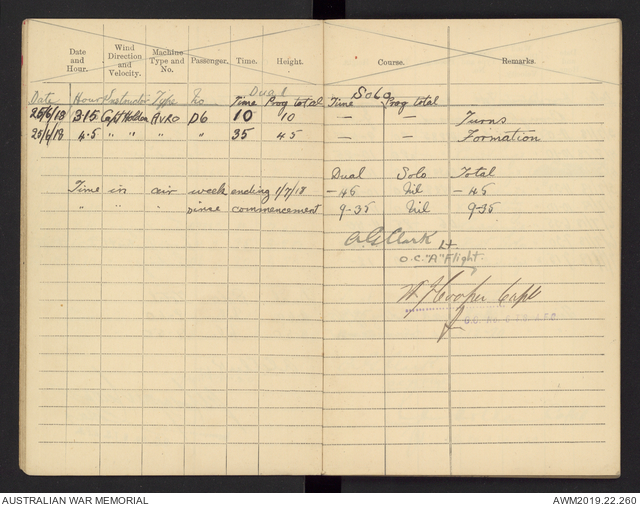 Date and Hour. Wind Direction and Velocity. Machine Type and No. Passenger. Time. Height. Course. Remarks.
Dual Solo
Date Hour Instructor Type No Time Prog total Time Prog total
25/6/18 3.15 Capt Holden AVRO D6 10 10 — — Turns
25/6/18 4.5 " " " 35 45 — — Formation
Dual Solo Total
Time in air week ending 1/7/18 -45 Nil -45
" " " since commencement 9-35 Nil 9-35
A G Clark Lt
O.C. "A" Flight.
Cooper Capt
AUSTRALIAN WAR MEMORIAL AWM2019.22.260